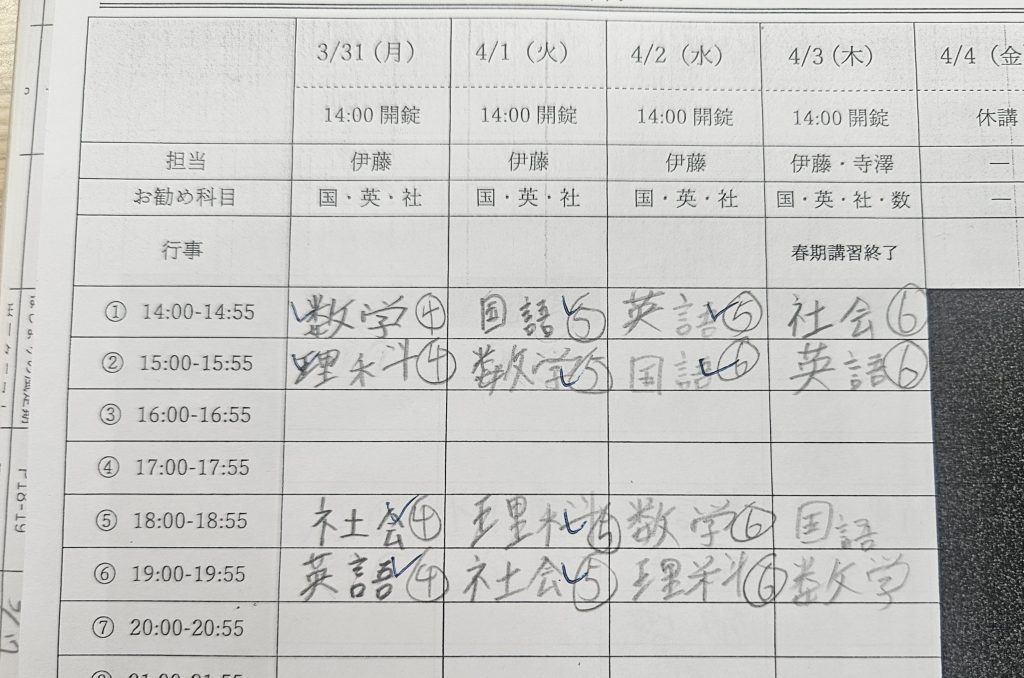 3/31（月） 4/1（火） 4/2（水） 4/3（木） 4/4（金
14:00 開錠 14:00 開錠 14:00 開錠 14:00 開錠 休講
担当 伊藤 伊藤 伊藤 伊藤・寺澤 ―
お勧め科目 国・英・社 国・英・社 国・英・社 国・英・社・数 ―
行事 春期講習終了
① 14:00-14:55 数学④ 国語⑤ 英語⑤ 社会⑥
② 15:00-15:55 理科④ 数学⑤ 国語⑥ 英語⑥
③ 16:00-16:55
④ 17:00-17:55
⑤ 18:00-18:55 社会④ 理科⑤ 数学⑥ 国語
⑥ 19:00-19:55 英語④ 社会⑤ 理科⑥ 数学
⑦ 20:00-20:55